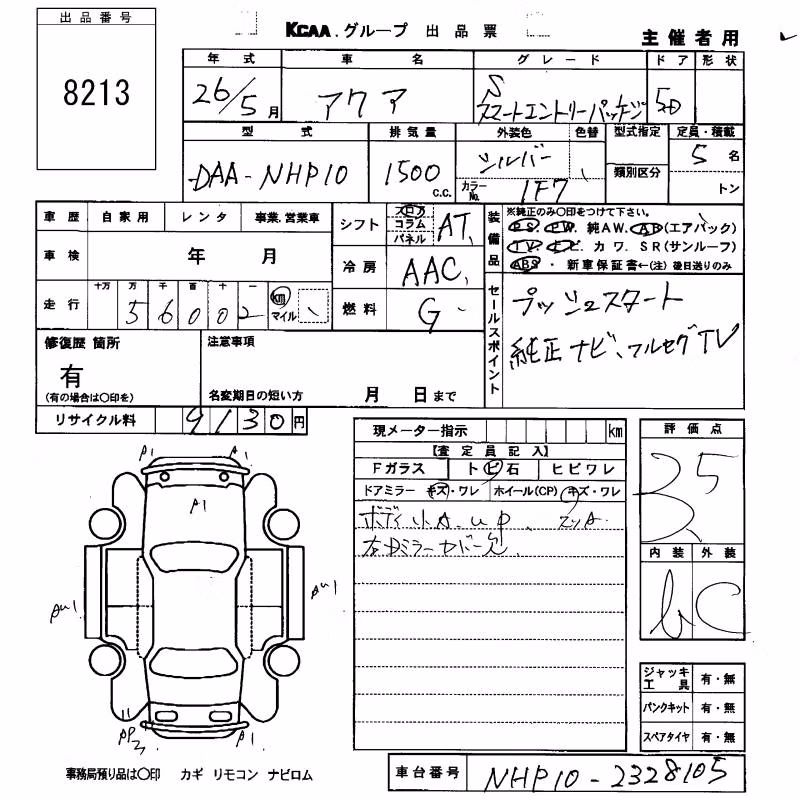 出品番号
8213
KCAA.グループ 出品票
主催者用
年式 車名 グレード ドア 形状
26/5月 アクア S スマートエントリーパッケジ 5D
型式 排気量 外装色 色替 型式指定 定員・積載
DAA-NHP10 1500 C.C. シルバー 5名
カラーNo. 1F7 類別区分 トン
車歴 自家用 レンタ 事業.営業車
車検 年 月
走行 十万 万 千 百 十 一
56002 km マイル
シフト フロア コラム パネル AT
冷房 AAC
燃料 G
装備品
※純正のみ○印をつけて下さい。
PS. PW. 純AW. AB(エアバック)
TV. ナビ. カワ. SR(サンルーフ)
ABS・新車保証書←(注)後日送りのみ
セールスポイント
プッシュスタート
純正ナビ、フルセグTV
修復歴 箇所
有
(有の場合は○印を)
注意事項
名変期日の短い方 月 日まで
リサイクル料 9130円
現メーター指示 km
【査定員記入】
Fガラス トビ石 ヒビワレ
ドアミラー キズ・ワレ ホイール(CP) キズ・ワレ
ボディ小A.UP.
右Dミラーカバー欠
評価点
3.5
内装 外装
b C
A1 A1
A1
AU1 AU1
AP2 A1
ジャッキ工具 有・無
パンクキット 有・無
スペアタイヤ 有・無
事務局預り品は○印 カギ リモコン ナビロム
車台番号 NHP10-2328105